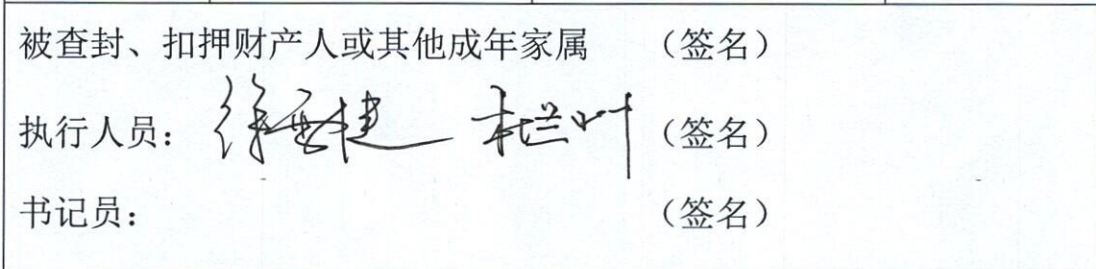 被查封、扣押财产人或其他成年家属 （签名）
执行人员： 徐 捷 （签名）
书记员： （签名）